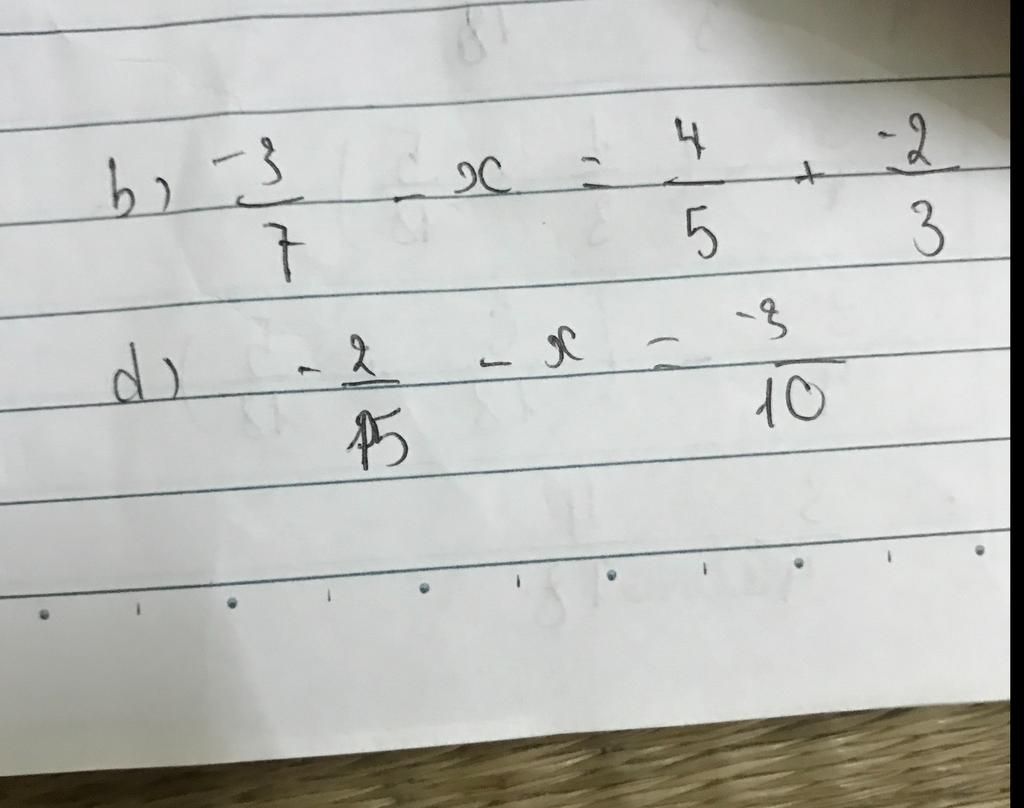 b) -3/7 - x = 4/5 + -2/3
d) - 2/15 - x = -3/10